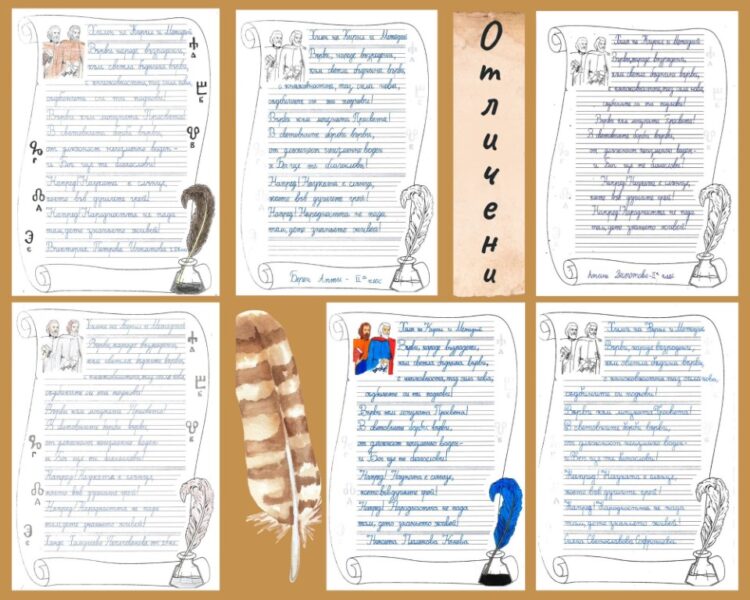 Химн на Кирил и Методий
Върви, народе възродени,
към светла бъднина върви,
с книжовността, таз сила нова,
съдбините си ти поднови!
Върви към мощната Просвета!
В световните борби върви,
от длъжност неизменно воден -
и Бог ще те благослови!
Напред! Науката е слънце,
което във душите грей!
Напред! Народността не пада
там, дето знаньето живей!
Виктория Петрова
Химн на Кирил и Методий
Върви, народе възродени,
към светла бъднина върви,
с книжовността, таз сила нова,
съдбините си ти поднови!
Върви към мощната Просвета!
В световните борби върви,
от длъжност неизменно воден
и Бог ще те благослови!
Напред! Науката е слънце,
което във душите грей!
Напред! Народността не пада
там, дето знаньето живей!
клас
Отличени
Химн на Кирил и Методий
Върви, народе възродени,
към светла бъднина върви,
с книжовността, таз сила нова,
съдбините си ти поднови!
Върви към мощната Просвета!
В световните борби върви,
от длъжност неизменно воден
и Бог ще те благослови!
Напред! Науката е слънце,
което във душите грей!
Напред! Народността не пада
там, дето знаньето живей!
клас
Химн на Кирил и Методий
Върви, народе възродени,
към светла бъднина върви,
с книжовността, таз сила нова,
съдбините си ти поднови!
Върви към мощната Просвета!
В световните борби върви,
от длъжност неизменно воден -
и Бог ще те благослови!
Напред! Науката е слънце,
което във душите грей!
Напред! Народността не пада
там, дето знаньето живей!
Химн на Кирил и Методий
Върви, народе възродени,
към светла бъднина върви,
с книжовността, таз сила нова,
съдбините си ти поднови!
Върви към мощната Просвета!
В световните борби върви,
от длъжност неизменно воден -
и Бог ще те благослови!
Напред! Науката е слънце,
което във душите грей!
Напред! Народността не пада
там, дето знаньето живей!
Никита Пламенова
Химн на Кирил и Методий
Върви, народе възродени,
към светла бъднина върви,
с книжовността, таз сила нова,
съдбините си ти поднови!
Върви към мощната Просвета!
В световните борби върви,
от длъжност неизменно воден -
и Бог ще те благослови!
Напред! Науката е слънце,
което във душите грей!
Напред! Народността не пада
там, дето знаньето живей!
Светославова